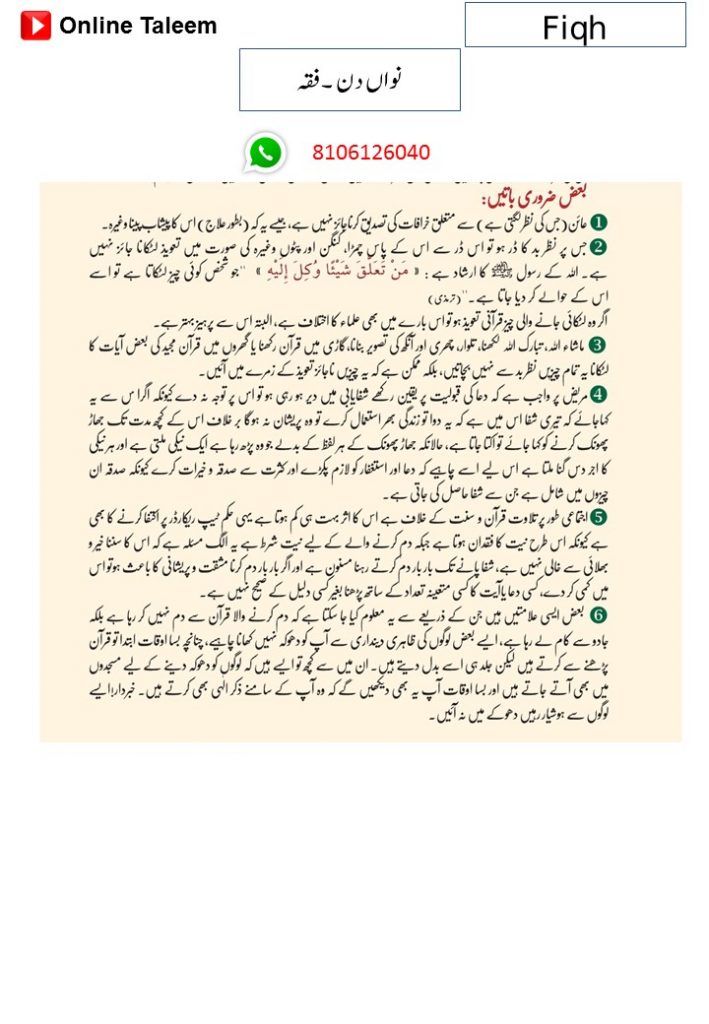 Online Taleem
Fiqh
نواں دن ۔ فقہ
8106126040
بعض ضروری باتیں:
❶ عائن (جس کی نظر لگتی ہے) سے متعلق خرافات کی تصدیق کرنا جائز نہیں ہے، جیسے یہ کہ (بطور علاج) اس کا پیشاب پینا وغیرہ۔
❷ جس پر نظر بد کا ڈر ہو تو اس ڈر سے اس کے پاس چمڑا، کنگن اور پٹوں وغیرہ کی صورت میں تعویذ لٹکانا جائز نہیں
ہے۔ اللہ کے رسول ﷺ کا ارشاد ہے: «مَنْ تَعَلَّقَ شَيْئًا وُكِلَ إِلَيْهِ» ''جو شخص کوئی چیز لٹکاتا ہے تو اسے
اس کے حوالے کر دیا جاتا ہے۔'' (ترمذی)
اگر وہ لٹکائی جانے والی چیز قرآنی تعویذ ہو تو اس بارے میں بھی علماء کا اختلاف ہے، البتہ اس سے پرہیز بہتر ہے۔
❸ ماشاء اللہ، تبارک اللہ لکھنا، تلوار، چھری اور آنکھ کی تصویر بنانا، گاڑی میں قرآن رکھنا یا گھروں میں قرآن مجید کی بعض آیات کا
لٹکانا یہ تمام چیزیں نظر بد سے نہیں بچاتیں، بلکہ ممکن ہے کہ یہ چیزیں ناجائز تعویذ کے زمرے میں آئیں۔
❹ مریض پر واجب ہے کہ دعا کی قبولیت پر یقین رکھے شفایابی میں دیر ہو رہی ہو تو اس پر توجہ نہ دے کیونکہ اگر اس سے یہ
کہا جائے کہ تیری شفا اس میں ہے کہ یہ دوا تو زندگی بھر استعمال کرے تو وہ پریشان نہ ہوگا بر خلاف اس کے کچھ مدت تک جھاڑ
پھونک کرنے کو کہا جائے تو اکتا جاتا ہے، حالانکہ جھاڑ پھونک کے ہر لفظ کے بدلے جو وہ پڑھ رہا ہے ایک نیکی ملتی ہے اور ہر نیکی
کا اجر دس گنا ملتا ہے اس لیے اسے چاہیے کہ دعا اور استغفار کو لازم پکڑے اور کثرت سے صدقہ و خیرات کرے کیونکہ صدقہ ان
چیزوں میں شامل ہے جن سے شفا حاصل کی جاتی ہے۔
❺ اجتماعی طور پر تلاوت قرآن و سنت کے خلاف ہے اس کا اثر بہت ہی کم ہوتا ہے یہی حکم ٹیپ ریکارڈر پر اکتفا کرنے کا بھی
ہے کیونکہ اس طرح نیت کا فقدان ہوتا ہے جبکہ دم کرنے والے کے لیے نیت شرط ہے یہ الگ مسئلہ ہے کہ اس کا سننا خیر و
بھلائی سے خالی نہیں ہے، شفا پانے تک بار بار دم کرتے رہنا مسنون ہے اور اگر بار بار دم کرنا مشقت و پریشانی کا باعث ہو تو اس
میں کمی کر دے، کسی دعا یا آیت کا کسی متعینہ تعداد کے ساتھ پڑھنا بغیر کسی دلیل کے صحیح نہیں ہے۔
❻ بعض ایسی علامتیں ہیں جن کے ذریعے سے یہ معلوم کیا جا سکتا ہے کہ دم کرنے والا قرآن سے دم نہیں کر رہا ہے بلکہ
جادو سے کام لے رہا ہے، ایسے بعض لوگوں کی ظاہری دینداری سے آپ کو دھوکہ نہیں کھانا چاہیے، چنانچہ بسا اوقات ابتدا تو قرآن
پڑھنے سے کرتے ہیں لیکن جلد ہی اسے بدل دیتے ہیں۔ ان میں سے کچھ تو ایسے ہیں کہ لوگوں کو دھوکہ دینے کے لیے مسجدوں
میں بھی آتے جاتے ہیں اور بسا اوقات آپ یہ بھی دیکھیں گے کہ وہ آپ کے سامنے ذکر الٰہی بھی کرتے ہیں۔ خبردار! ایسے
لوگوں سے ہوشیار رہیں دھوکے میں نہ آئیں۔